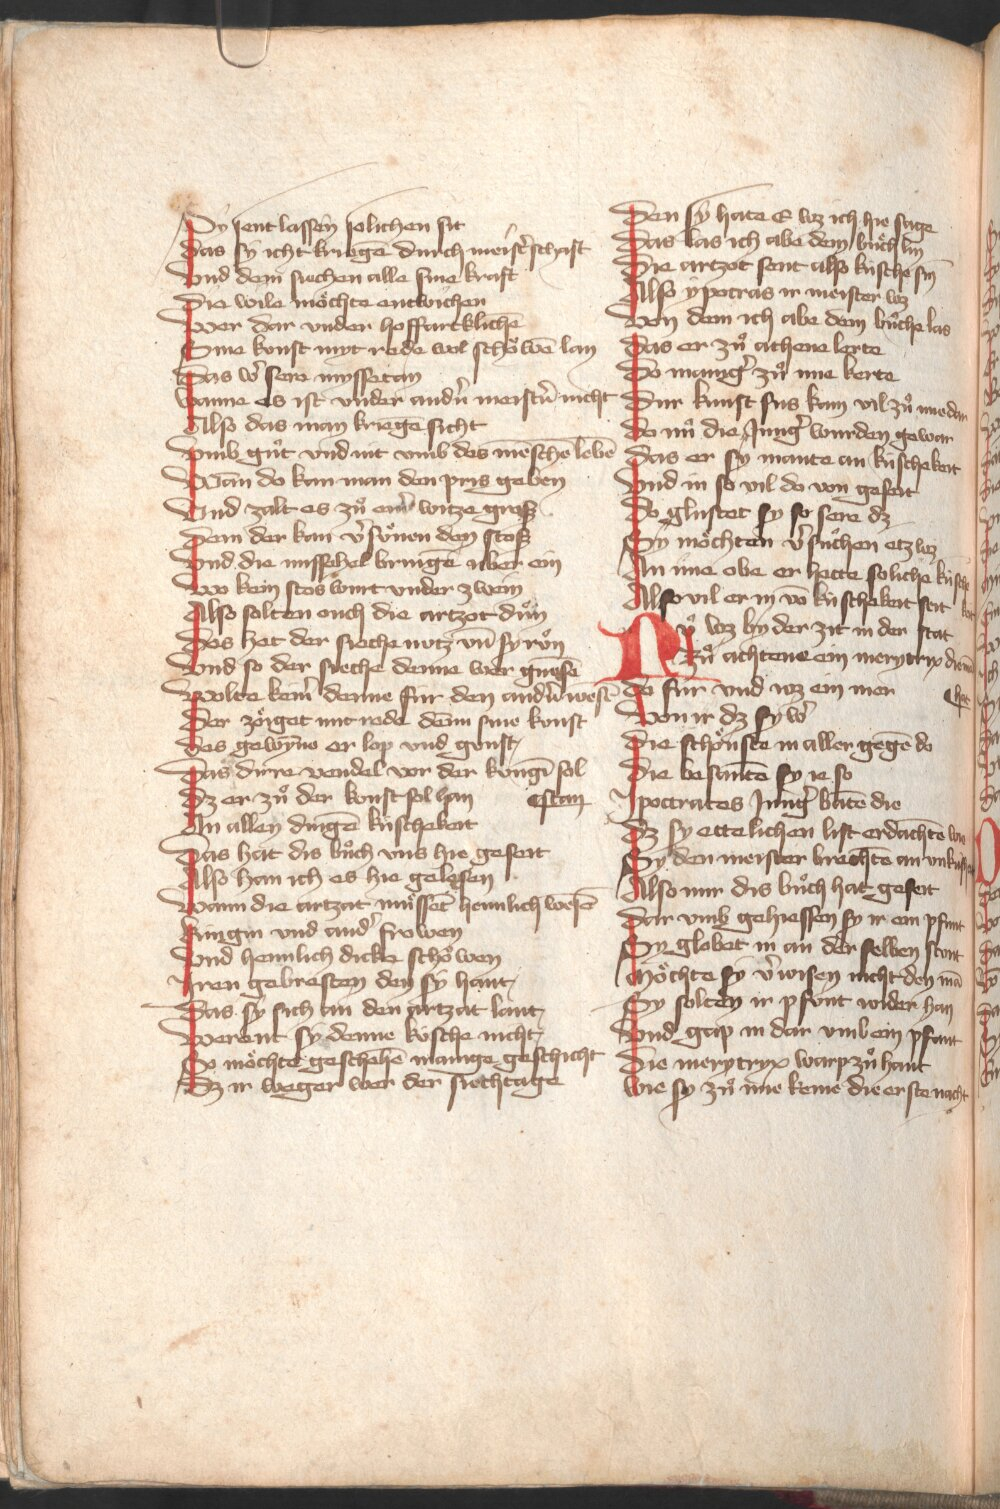 Sy sent lassen solichen sit
Das sy icht kriegē durch meist̾schaft
Vnd dem siechen alle sine kraft
Die wile möchte entwichen
Wer dar vnder hoffarcklichē
Sine konst myt rede wol schöwē lan
Das w̾ sere myssetan
Wanne es ist vnder and̾n meist̾n nicht
Also das man kriegē sicht
Vmb gůt vnd nit vmb des mēschē lebē
Wan̄ do kan man den pris geben
Vnd zalt es zů ein̾ witze groß
Dem der kan v̾sůnen den stoß
Vnd die missehel bringē vber ein
Wo kein stos wirt vnder zwein
Also solten ouch die artzot důn
Des het der sieche nutz vn̄ sy rům
Vnd so der sieche denne wer gnesē
Wolte kein̾ denne fur den and̾n wesē
Der zöiget mit rede denn sine konst
Des gewynne er lop vnd gonst
Das dirre vendel vor der kungī sol
Dz er zů der konst sol han
stan
An allen dingē küschekeit
Das hat dis bůch vns hie geseit
Also han ich es hie gelesen
Wann die artzat můssēt heimlich wesē
Kungin vnd and̾ frowen
Vnd heimlich dicke schöwen
Iren gebresten den sy hant
Das sy sich an den artzat lant
Werent sy denne küsche nicht
So möchte geschehē manige geschicht
Dz ir weger wer der siechtage
Den sy hate E wz ich hie sage
Das las ich abe dem bůch hin
Die artzot sent also küsche sin
Also ypocras ir meister wz
Von dem ich abe dem bůche las
Das er zů athene lerte
Do manig̾ zů ime kerte
Dur kunst sus kam vil zů ime dar
do nů die Jung̾ wurden gewar
Das er sy mante an küschekeit
Vnd in so vil do von geseit
Do glustet sy so sere dz
Sy möchten v̾sůchen etzwz
An ime obe er hette soliche küsche
keit
Also vil er in vō küschekeit seit
Nů wz by der zit in der stat
Zů achtene ein merytrix die
hat
do fur vnd wz ein mer
Von ir dz sy w̾
Die schönste in aller gegē do
Die besantē sy ie so
Ipocrates Jung̾ batē die
Dz sy ettelichen list erdachtē wie
Sy den meister brechtē an vnküsch
Also mir dis bůch hat geseit
Dar vmb gehiessen sy ir ein pfunt
Sy globet in an der selben stunt
Möchte sy v̾wisen nicht den mā
Sy solten ir pfunt wider han
Vnd gap in dar vmb ein pfant
Die merytryx warp zů hant
Wie sy zů ime keme die erste nacht